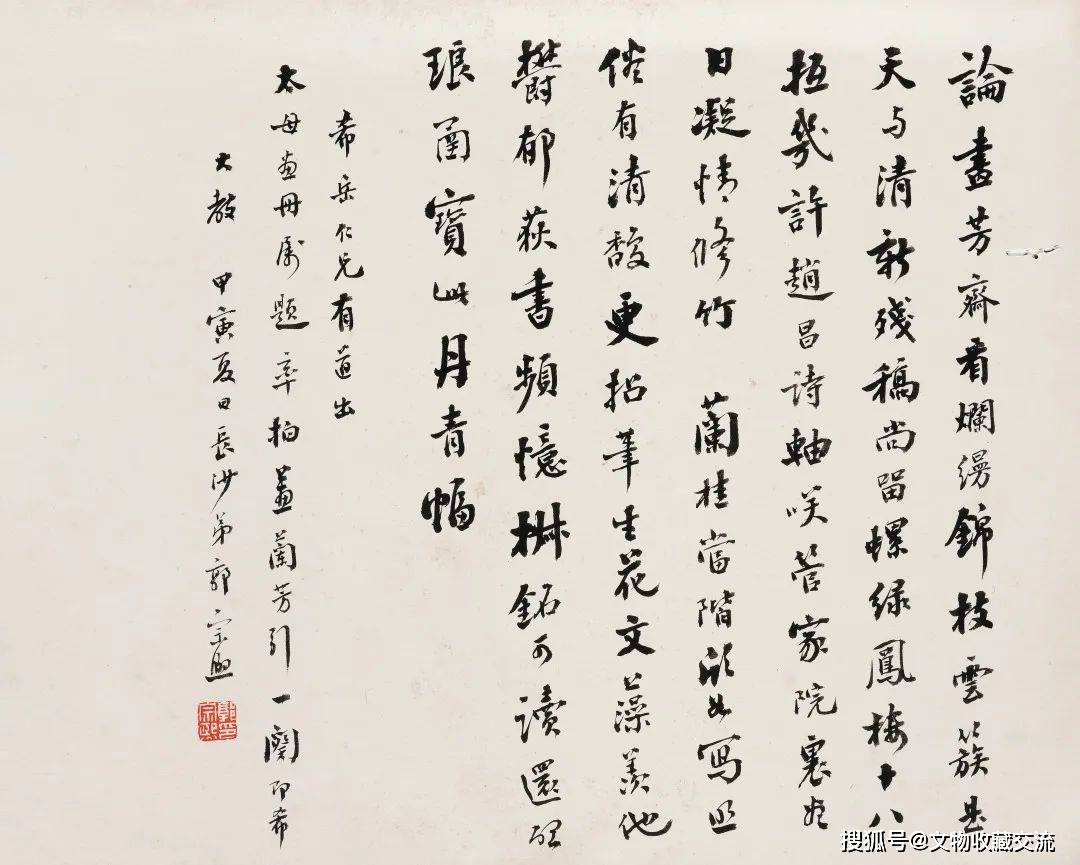 論畫芳齋看爛縵錦枝雲簇是
天与清新殘稿尚留螺綠鳳樓十八
垣幾許趙昌詩軸咲管家院裏
日凝情修竹 蘭桂當階欣如寫照
俗有清馥更招筆生花文藻羨他
欝郁荻書頻憶楙銘可讀還
琅函寶此丹青幅
希岳仁兄有道出
太母畫冊属題率拍蕙蘭芳引一闋即希
大教 甲寅夏日長沙弟郭宗熙
搜狐号@文物收藏交流